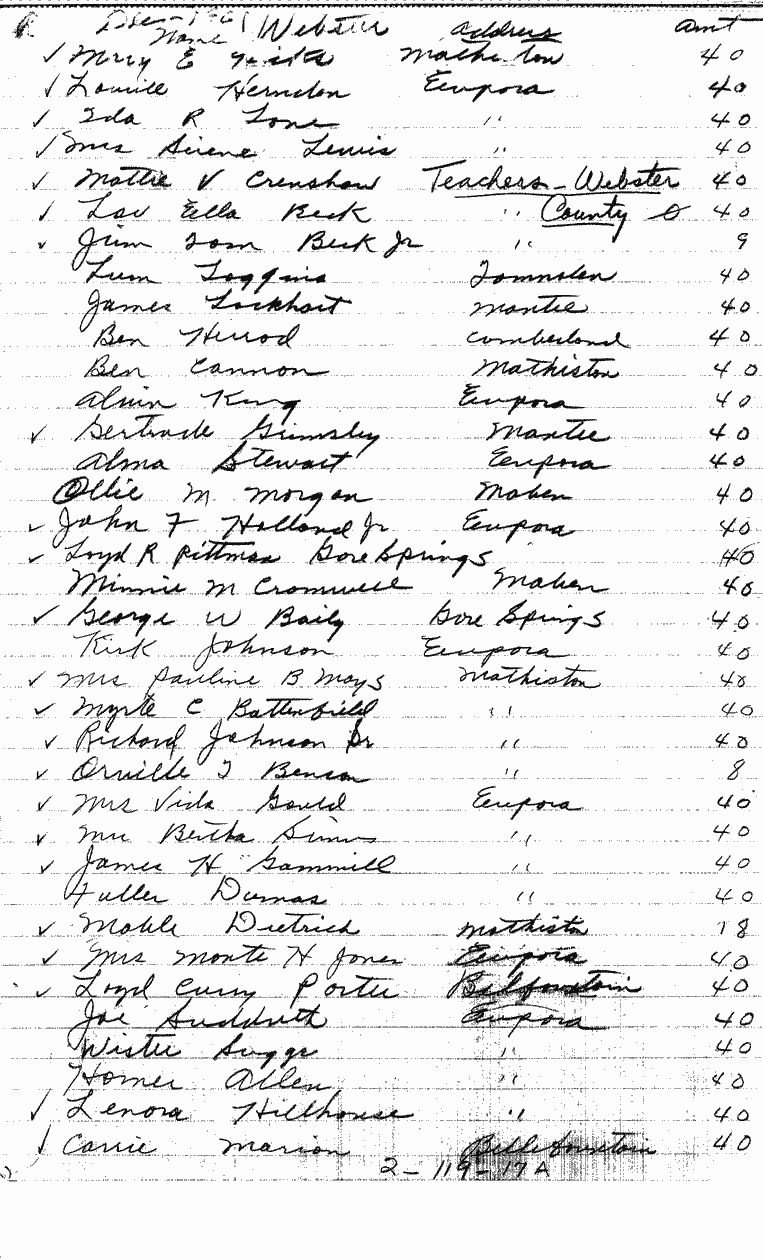 Dec - 1961 Webster
Name address amt
✓ Mary E Mathiston 40
✓ Louise Herndon Eupora 40
✓ Ida R Lone " 40
✓ Mrs Sirene Lewis " 40
✓ Mattie V Crenshaw Teachers - Webster 40
✓ Lou Ella Beck " County 40
✓ Jim Tom Beck Jr " 9
Lum Loggins Tomnolen 40
James Lockhart Mantee 40
Ben Herrod Cumberland 40
Ben Cannon Mathiston 40
Alvin King Eupora 40
✓ Gertrude Grimsley Mantee 40
Alma Stewart Eupora 40
Ollie M. Morgan Maben 40
✓ John F Holland Jr Eupora 40
✓ Loyd R Pittman Gore Springs 40
Minnie M Cromwell Maben 40
✓ George W Baily Gore Springs 40
Kirk Johnson Eupora 40
✓ Mrs Pauline B Mays Mathiston 40
✓ Myrtle C Battenfield " 40
✓ Richard Johnson Sr " 40
✓ Orville T Benson " 8
✓ Mrs Vida Gould Eupora 40
✓ Mrs Bertha Simms " 40
✓ James H Gammill " 40
Fuller Dumas " 40
✓ Mable Dietrich Mathiston 18
✓ Mrs Monte H Jones Eupora 40
✓ Loyd Curry Porter Bellfountain 40
Joe Sudduth Eupora 40
Wister Suggs " 40
Homer Allen " 40
✓ Lenora Hillhouse " 40
✓ Carrie Marion Bellefountain 40
2-119-17A